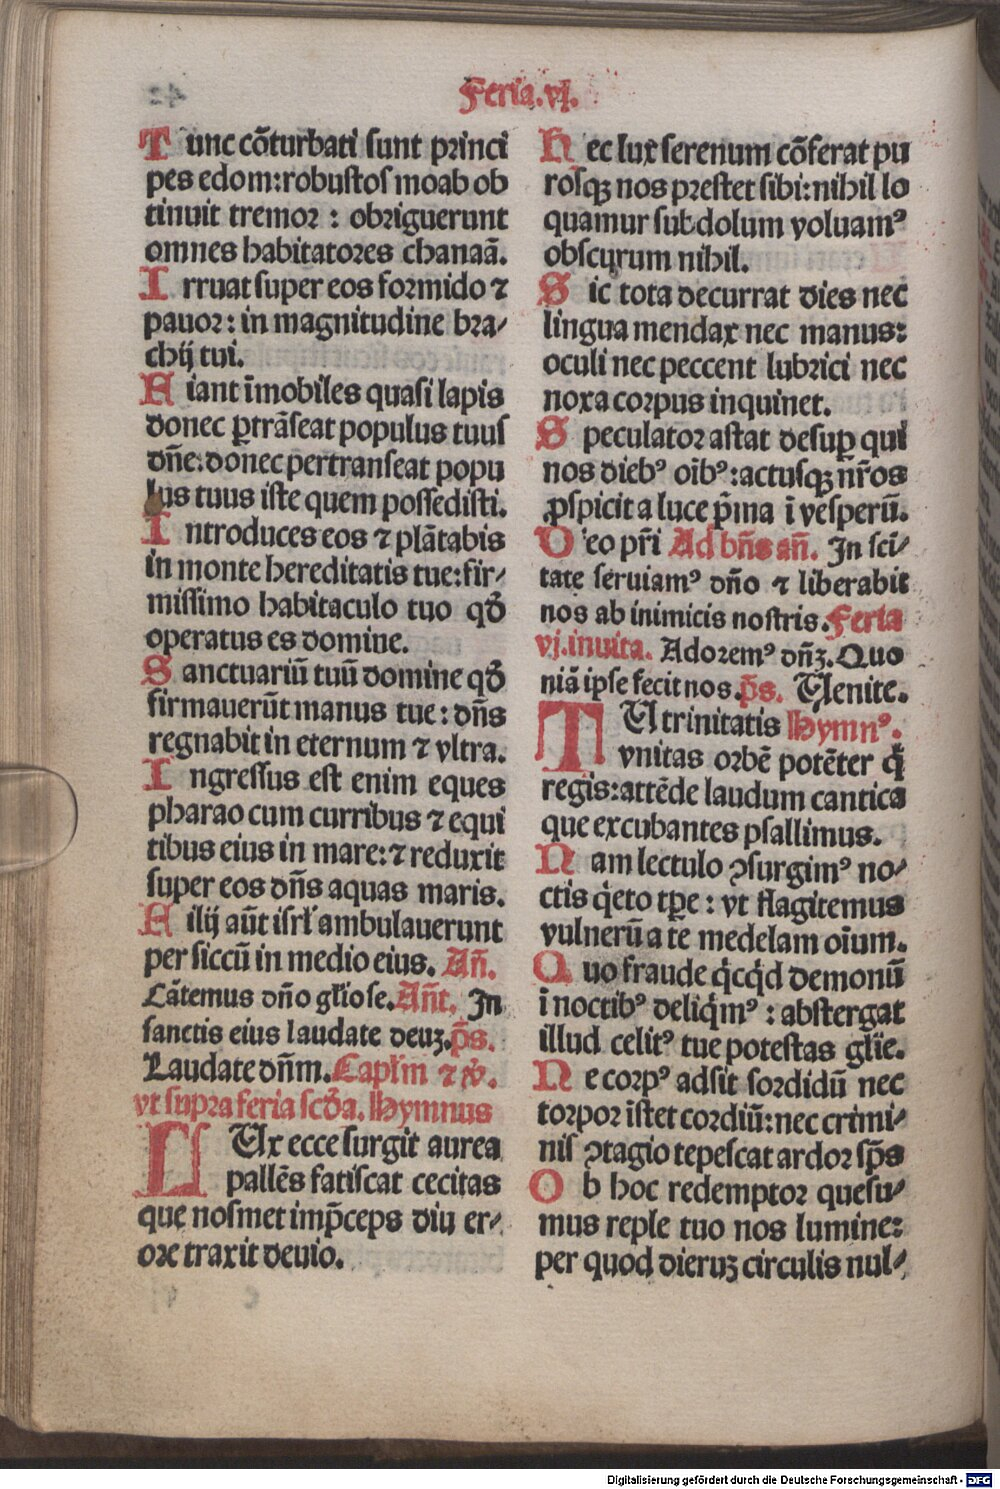 Feria.vj.
Tunc cõturbati sunt princi
pes edom:robustos moab ob
tinuit tremor : obriguerunt
omnes habitatores chanaã.
Irruat super eos formido ⁊
pauor: in magnitudine bra⸗
chij tui.
Fiant ĩmobiles quasi lapis
donec ꝑtrãseat populus tuus
dñe:donec pertranseat popu
lus tuus iste quem possedisti.
Introduces eos ⁊ plãtabis
in monte hereditatis tue:fir⸗
missimo habitaculo tuo qð
operatus es domine.
Sanctuariũ tuũ domine qð
firmauerũt manus tue: dñs
regnabit in eternum ⁊ vltra.
Ingressus est enim eques
pharao cum curribus ⁊ equi
tibus eius in mare:⁊ reduxit
super eos dñs aquas maris.
Filij aũt isrł ambulauerunt
per siccũ in medio eius. Añ.
Cãtemus dño głiose. Añt. In
sanctis eius laudate deuꝫ.p̃s.
Laudate dñm. Capłm ⁊ ꝟ.
vt supra feria scða. Hymnus
LUx ecce surgit aurea
pallẽs fatiscat cecitas
que nosmet imp̃ceps diu er⸗
rore traxit deuio.
Hec lux serenum cõferat pu
rosqꝫ nos prestet sibi:nihil lo
quamur subdolum voluamꝰ
obscurum nihil.
Sic tota decurrat dies nec
lingua mendax nec manus:
oculi nec peccent lubrici nec
noxa corpus inquinet.
Speculator astat desuꝑ qui
nos diebꝰ oĩbꝰ:actusqꝫ nr̃os
ꝓspicit a luce p̃ma ĩ vesperũ.
Deo pr̃i Ad bñs añ. In sci⸗
tate seruiamꝰ dño ⁊ liberabit
nos ab inimicis nostris. Feria
vj.inuita. Adoremꝰ dñꝫ. Quo
niã ipse fecit nos.p̃s. Uenite.
TU trinitatis Hymnꝰ.
vnitas orbẽ potẽter q̃
regis:attẽde laudum cantica
que excubantes psallimus.
Nam lectulo ꝯsurgimꝰ no⸗
ctis q̇eto tꝑe : vt flagitemus
vulnerũ a te medelam oĩum.
Quo fraude q̇cq̇d demonũ
ĩ noctibꝰ deliq̇mꝰ : abstergat
illud celitꝰ tue potestas głie.
Ne corpꝰ adsit sordidũ nec
torpor ĩstet cordiũ:nec crimi⸗
nis ꝯtagio tepescat ardor sp̃s
Ob hoc redemptor quesu⸗
mus reple tuo nos lumine:
per quod dieruꝫ circulis nul⸗
Digitalisierung gefördert durch die Deutsche Forschungsgemeinschaft - DFG